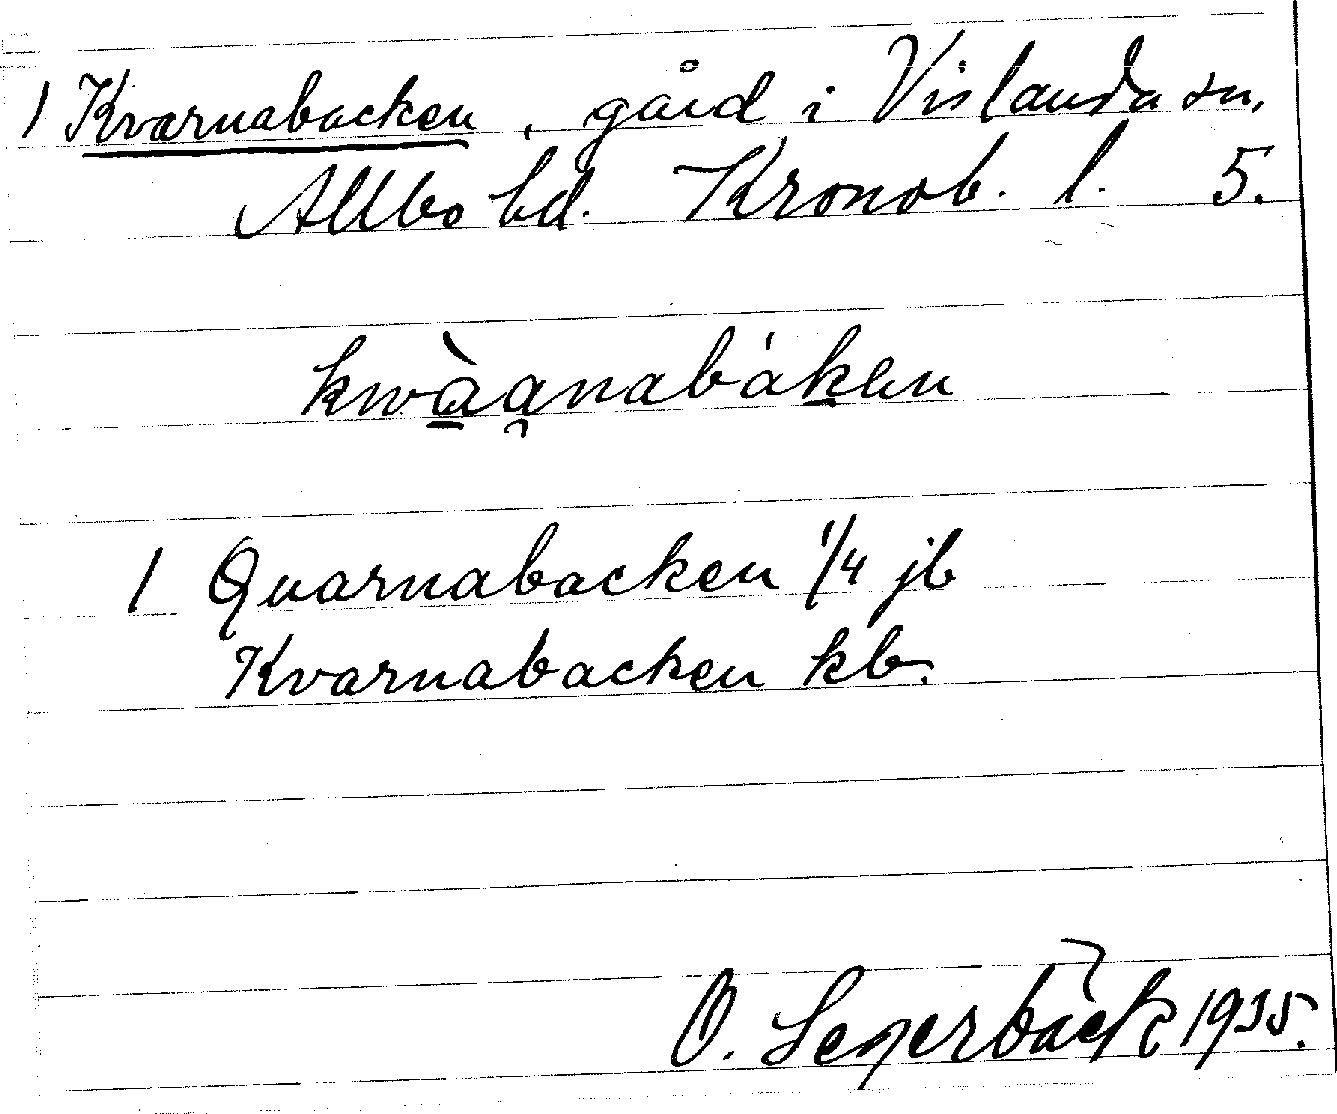 1 Kvarnabacken, gård i Vislanda sn,
Allbo hd. Kronob. l. 5.
kwàa̯nabáken
1 Quarnabacken 1/4 jb
Kvarnabacken kb.
O. Segerbäck 1935.